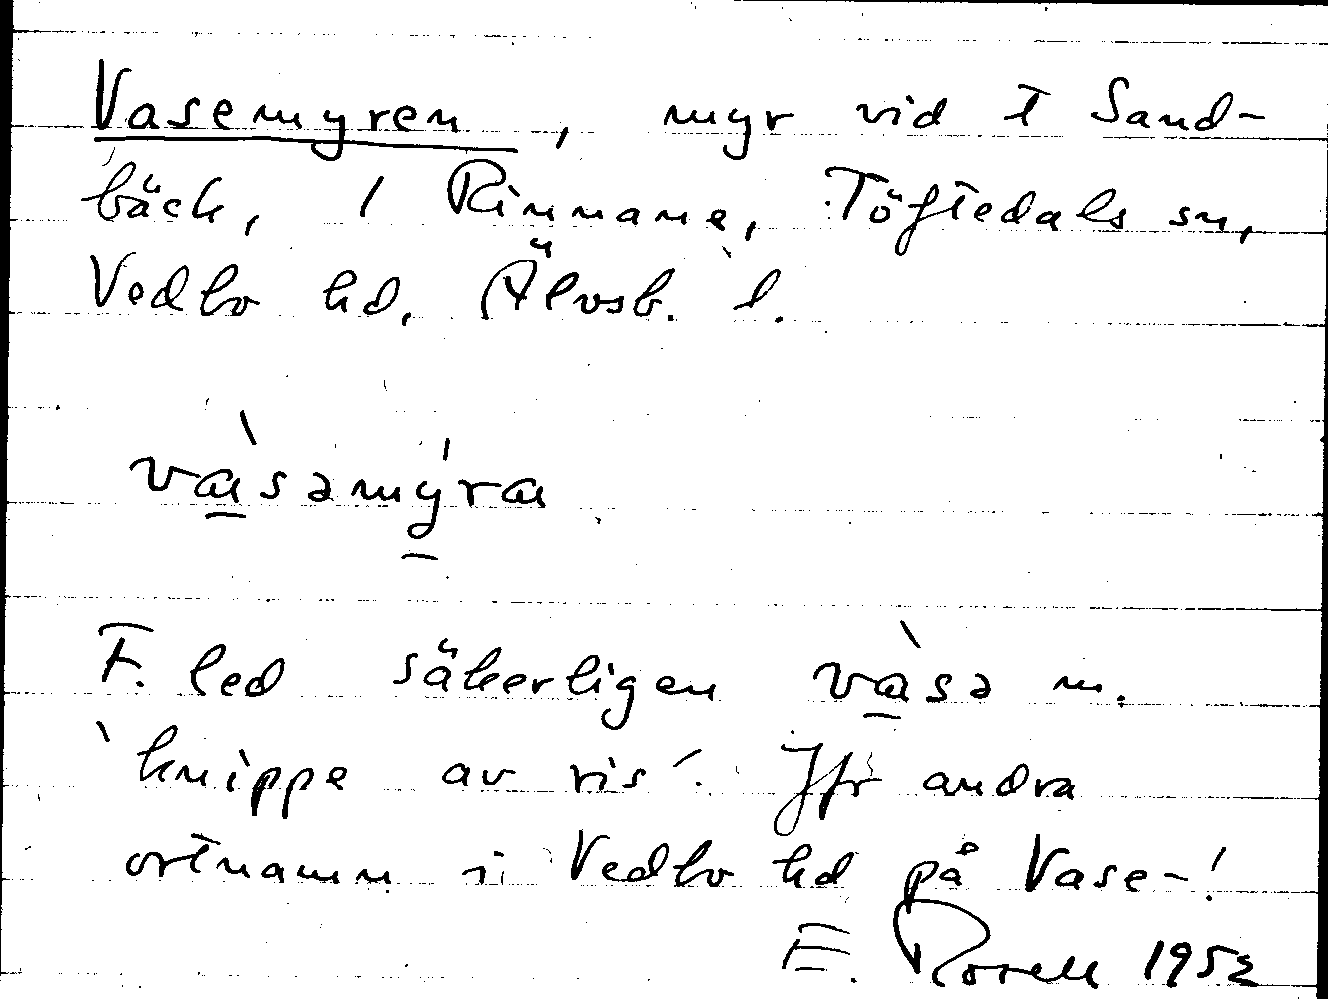 Vasemyren, myr vid t Sand-
bäck, 1 Rinnane, Töftedals sn,
Vedbo hd, Älvsb. l.
và̱səmý̱ra
F. led säkerligen và̱sə m.
`knippe av ris´. Jfr andra
ortnamn i Vedbo hd på Vase-!
E. Rosell 1952